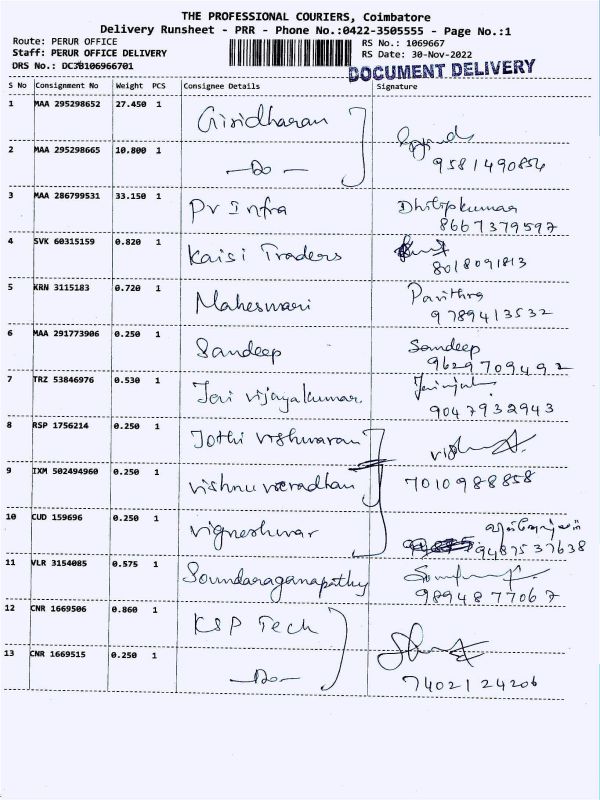 THE PROFESSIONAL COURIERS, Coimbatore
Delivery Runsheet - PRR - Phone No.:0422-3505555 - Page No.:1
Route: PERUR OFFICE
RS No.: 1069667
Staff: PERUR OFFICE DELIVERY
RS Date: 30-Nov-2022
DRS No.: DC38106966701
DOCUMENT DELIVERY
S No Consignment No Weight PCS Consignee Details Signature
1 MAA 295298652 27.450 1 Giridharan
2 MAA 295298665 10.800 1 —Do—
9581490854
3 MAA 286799531 33.150 1 Pv Infra Dhilipkumar
8667379597
4 SVK 60315159 0.820 1 Kaisi Traders
8018091813
5 KRN 3115183 0.720 1 Maheswari Pavithra
9789413532
6 MAA 291773906 0.250 1 Sandeep Sandeep
9629709492
7 TRZ 53846976 0.530 1 Jeri vijayakumar
9047932943
8 RSP 1756214 0.250 1 Jothi vishwaran
9 IXM 502494960 0.250 1 vishnu veeradhan 7010988858
10 CUD 159696 0.250 1 vigneshwar
9487537638
11 VLR 3154085 0.575 1 Soundaraganapathy
9894877067
12 CNR 1669506 0.860 1 KSP Tech
13 CNR 1669515 0.250 1 —Do—
7402124206